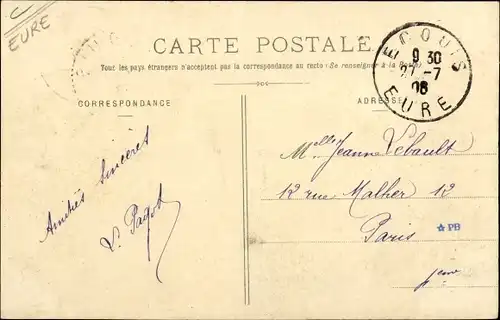 EURE
CARTE POSTALE
Tout les pays étrangers n'acceptent pas la correspondance au recto (Se renseigner à la
CORRESPONDANCE
ADRESSE
ECOUIS
9 30
21 -7
06
EURE
Amitiés sincères
V. Pagot
Melle Jeanne Vebault
12 rue Malher 12
Paris
PB